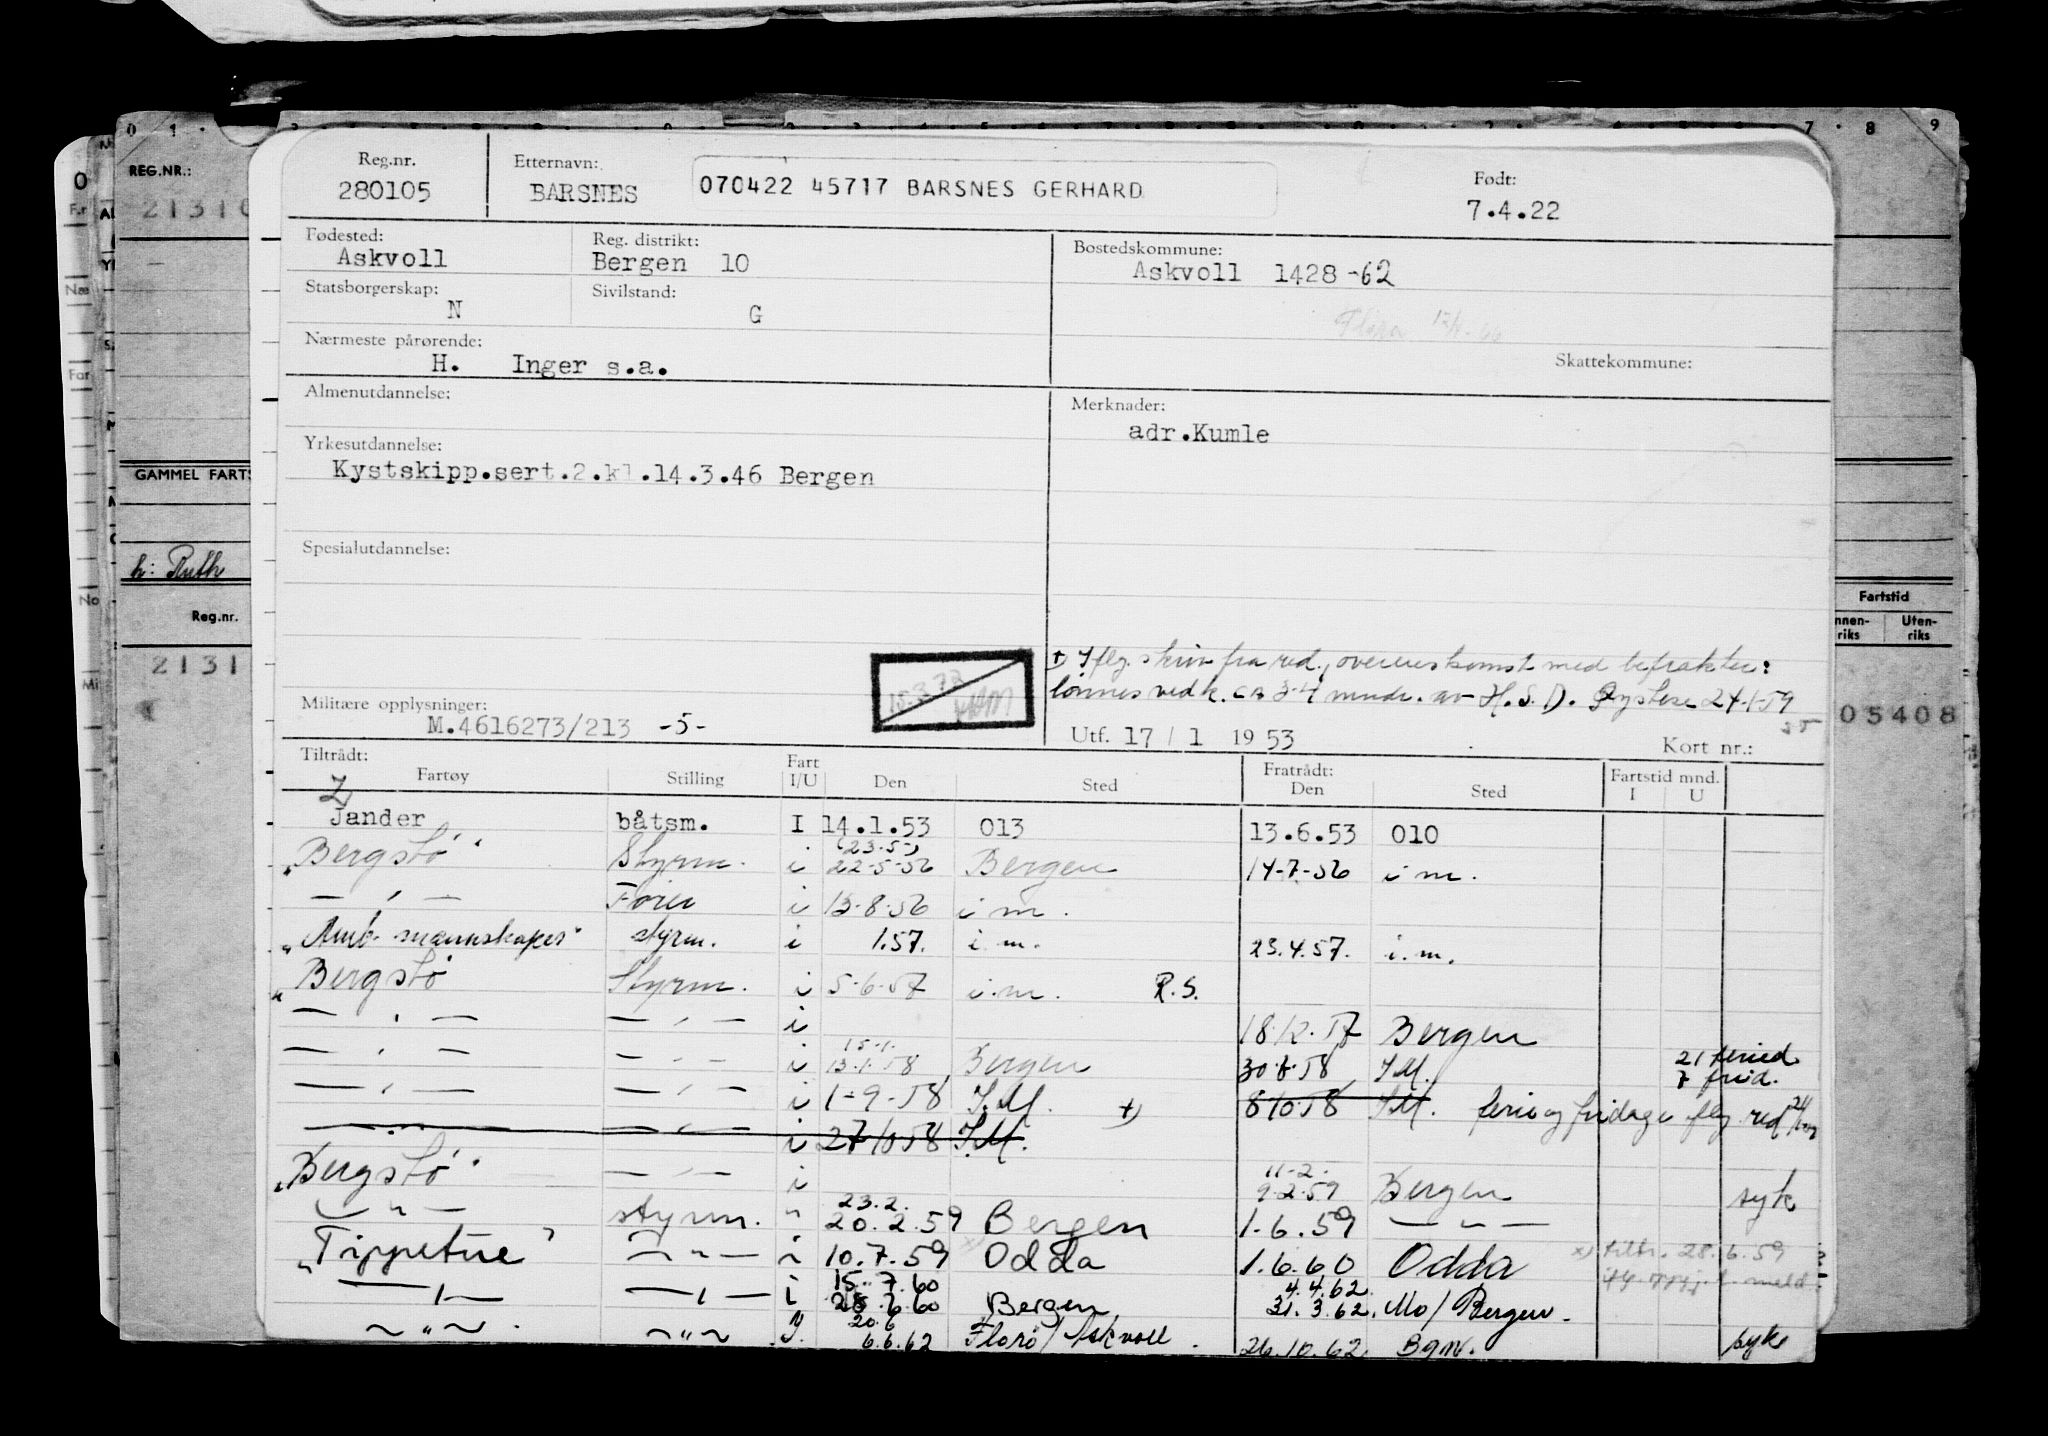 0 1 7 8 9
REG.NR.:
2131
GAMMEL FARTS
h: Ruth
Reg.nr.
2131
Reg.nr. Etternavn: Født:
280105 BARSNES 070422 45717 BARSNES GERHARD 7.4.22
Fødested: Reg. distrikt: Bostedskommune:
Askvoll Bergen 10 Askvoll 1428 -62
Statsborgerskap: Sivilstand:
N G
Nærmeste pårørende: Skattekommune:
H. Inger s.a.
Almenutdannelse: Merknader:
adr.Kumle
Yrkesutdannelse:
Kystskipp.sert.2.kl.14.3.46 Bergen
Spesialutdannelse:
+) Iflg. skriv fra red., overenskomst med befrakter:
lønnes ved k. ca 3-4 mndr. av H.S.D. 24-1-59
Militære opplysninger:
M.4616273/213 -5-
15.3.73
Utf. 17 / 1 19 53 Kort nr.:
Fartstid
Innen-riks Uten-riks
05408
Tiltrådt: Fratrådt: Fartstid mnd.
Fartøy Stilling Fart I/U Den Sted Den Sted I U
Jander båtsm. I 14.1.53 013 13.6.53 010
"Bergstø" Styrm. i (23.5) 22-5-56 Bergen 14-7-56 i m.
— " — Fører i 13-8-56 i m.
"Amb. mannskaper" styrm. i 1.57. i.m. 23.4.57. i.m.
"Bergstø Styrm. i 5-6-57 i.m. R.S.
— " — — " — i 18.12.57 Bergen
— " — — " — i 15.1. 13.1.58 Bergen 30.8.58 I.M. 21 feried. 7 frid.
— " — — " — i 1-9-58 I.M. +) 8/10-58 I.M. ferie og fridage flg. red
— " — — " — i 27/10 58 I.M.
"Bergstø" — " — i 11-2. 9.2.59 Bergen syk
— " — styrm. " 23.2. 20.2.59 Bergen 1.6.59 — " —
"Tippetue" — " — i 10.7.59 Odda 1.6.60 Odda x) tiltr. 28.6.59
— " — — " — i 15.7.60 28.6.60 Bergen 4.4.62. 31.3.62. Mo/Bergen.
— " — — " — 20.6 6.6.62 Florø/Askvoll. 26.10.62 Bgn. syk